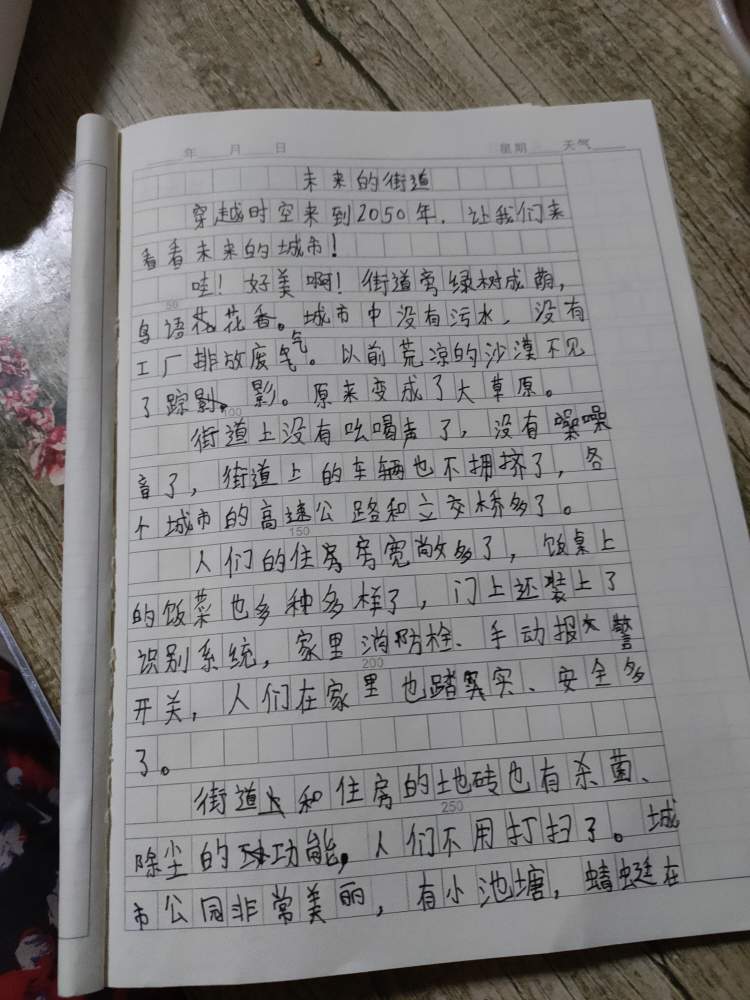 年 月 日 星期 天气
未来的街道
穿越时空来到2050年，让我们来
看看未来的城市！
哇！好美啊！街道旁绿树成荫，
50
鸟语花香。城市中没有污水，没有
工厂排放废气。以前荒凉的沙漠不见
了踪影。原来变成了大草原。
100
街道上没有吆喝声了，没有噪
音了，街道上的车辆也不拥挤了，各
个城市的高速公路和立交桥多了。
150
人们的住房宽敞多了，饭桌上
的饭菜也多种多样了，门上还装上了
识别系统，家里消防栓、手动报警
200
开关，人们在家里也踏实、安全多
了。
街道和住房的地砖也有杀菌、
250
除尘的功能，人们不用打扫了。城
市公园非常美丽，有小池塘，蜻蜓在